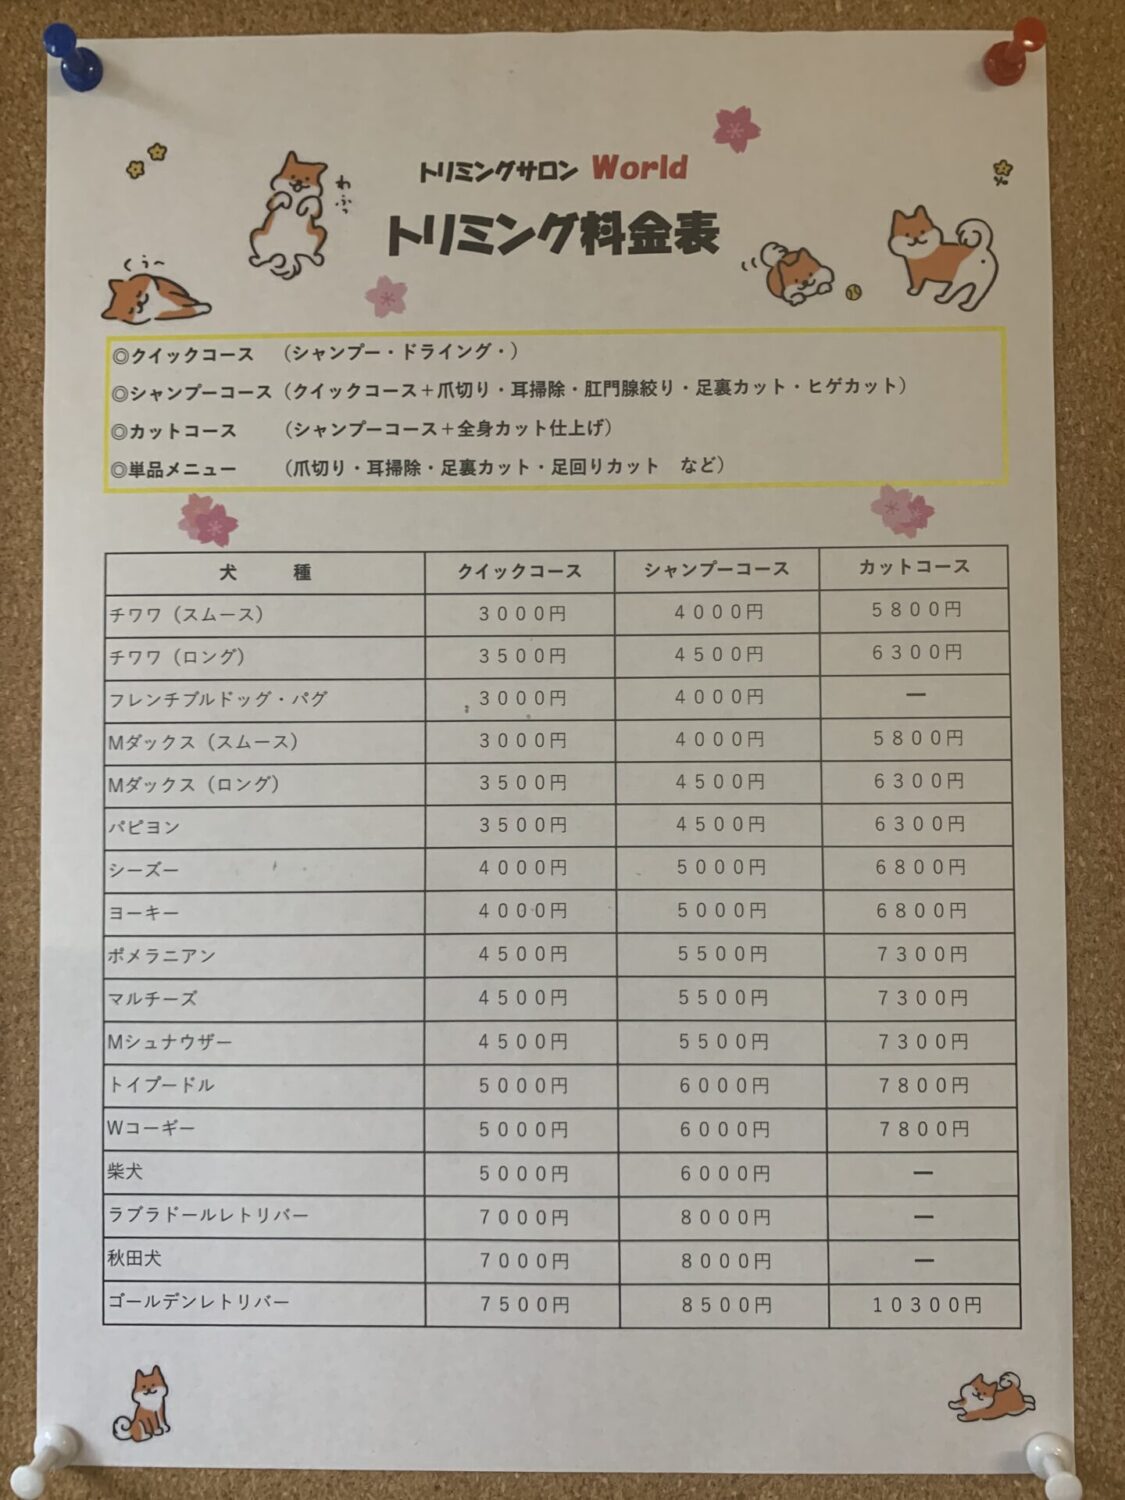 トリミングサロン World
トリミング料金表
わふっ
くぅ〜
◎クイックコース （シャンプー・ドライング・）
◎シャンプーコース（クイックコース＋爪切り・耳掃除・肛門腺絞り・足裏カット・ヒゲカット）
◎カットコース （シャンプーコース＋全身カット仕上げ）
◎単品メニュー （爪切り・耳掃除・足裏カット・足回りカット など）
犬 種 クイックコース シャンプーコース カットコース
チワワ（スムース） ３０００円 ４０００円 ５８００円
チワワ（ロング） ３５００円 ４５００円 ６３００円
フレンチブルドッグ・パグ ３０００円 ４０００円 ー
Mダックス（スムース） ３０００円 ４０００円 ５８００円
Mダックス（ロング） ３５００円 ４５００円 ６３００円
パピヨン ３５００円 ４５００円 ６３００円
シーズー ４０００円 ５０００円 ６８００円
ヨーキー ４０００円 ５０００円 ６８００円
ポメラニアン ４５００円 ５５００円 ７３００円
マルチーズ ４５００円 ５５００円 ７３００円
Mシュナウザー ４５００円 ５５００円 ７３００円
トイプードル ５０００円 ６０００円 ７８００円
Wコーギー ５０００円 ６０００円 ７８００円
柴犬 ５０００円 ６０００円 ー
ラブラドールレトリバー ７０００円 ８０００円 ー
秋田犬 ７０００円 ８０００円 ー
ゴールデンレトリバー ７５００円 ８５００円 １０３００円